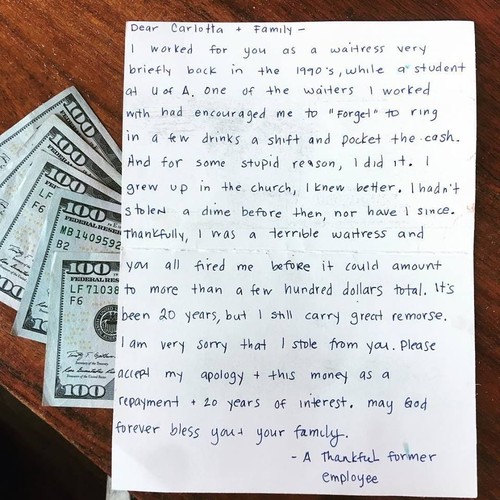 Dear Carlotta + Family -
I worked for you as a waitress very
briefly back in the 1990's, while a student
at U of A. One of the waiters I worked
with had encouraged me to "forget" to ring
in a few drinks a shift and pocket the cash.
And for some stupid reason, I did it. I
grew up in the church, I knew better. I hadn't
stolen a dime before then, nor have I since.
Thankfully, I was a terrible waitress and
you all fired me before it could amount
to more than a few hundred dollars total. It's
been 20 years, but I still carry great remorse.
I am very sorry that I stole from you. Please
accept my apology + this money as a
repayment + 20 years of interest. may God
forever bless you + your family.
- A Thankful former
employee
100
100
100
LF
F6
100
FEDERAL RES
MB1409592
B2
100
FEDERAL RES
LF 71038
F6
100